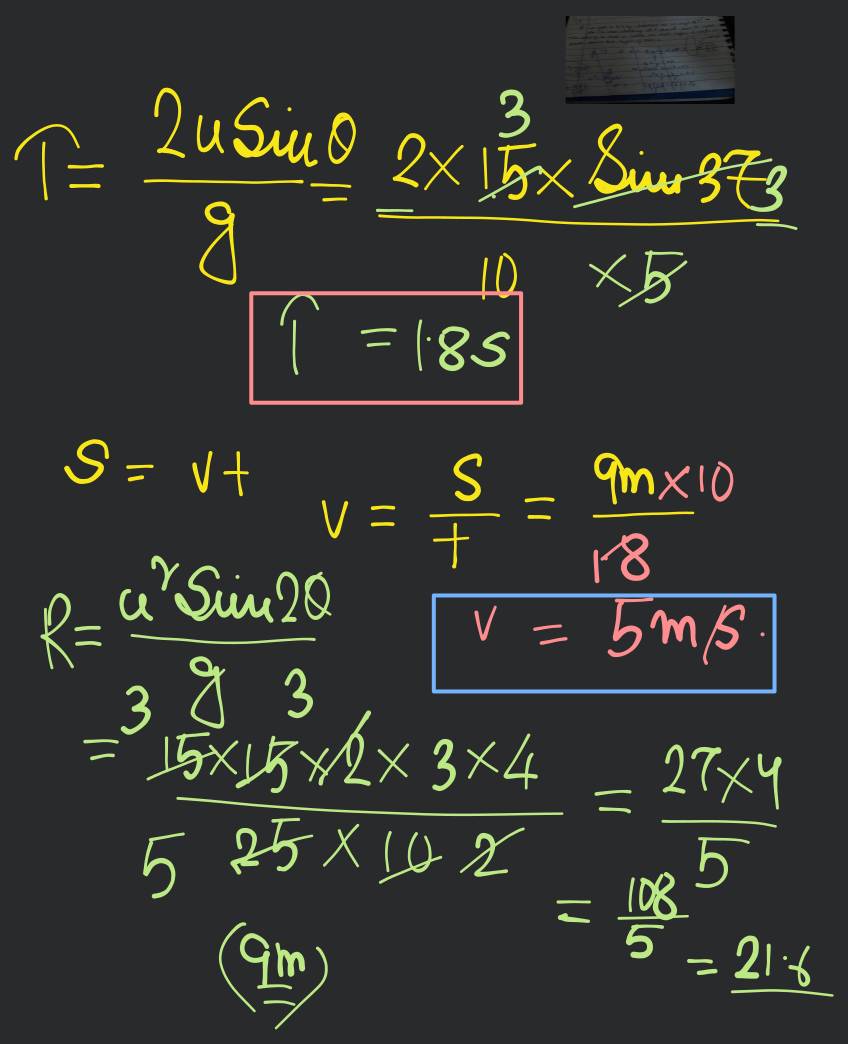 T = 2u Sin θ / g = 2 × 15 × Sin 37 3 / 10 × 5
3
T = 1.8s
S = vt
v = S / t = 9m × 10 / 1.8
R = u² Sin 2θ / g
v = 5 m/s.
3 3
= 15 × 15 × 2 × 3 × 4 / 25 × 10 2 = 27 × 4 / 5
5
= 108 / 5
= 21.6
(9m)